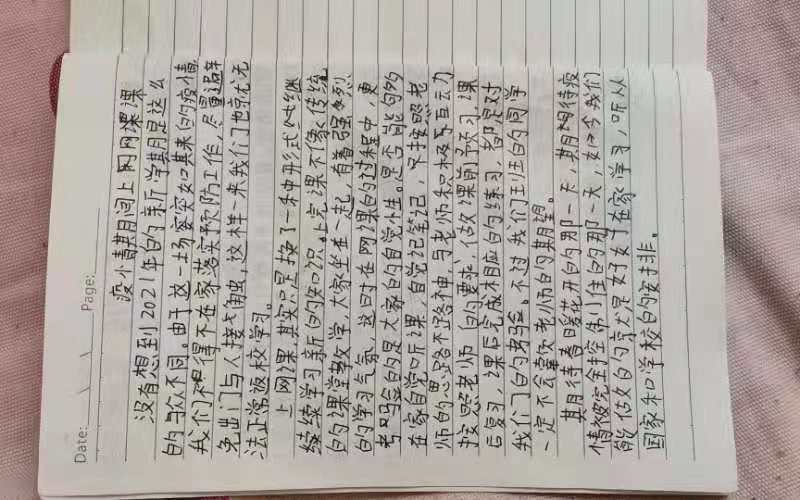 Date: Page:
疫情期间上网网课课
没有想到2021年的新学期是这么
的与众不同。由于这一场突如其来的疫情
我们不得不在家落实预防工作,尽量避
免出门与人接触,这样一来我们也就无
法正常返校学习。
上网课,其实只是换了一种形式
续学习新的知识。上网课不像传统
的课堂教学,大家坐在一起,有着强烈
的学习气氛,这时在网课的过程中,更
考验的是大家的自觉性。是否能
在家自觉听课,自觉记笔记,
师的思路不路神,与老师积极互动
按照老师的要求,做课前预习课
后复习,课后完成相应的练习,都是对
我们的考验。不过我们班的同学
一定不会辜负老师的期望。
期待春暖花开的那一天,期待疫
情被完全控制住的那一天,如今我们
能做的就是好好在家学习,听从
国家和学校的安排。